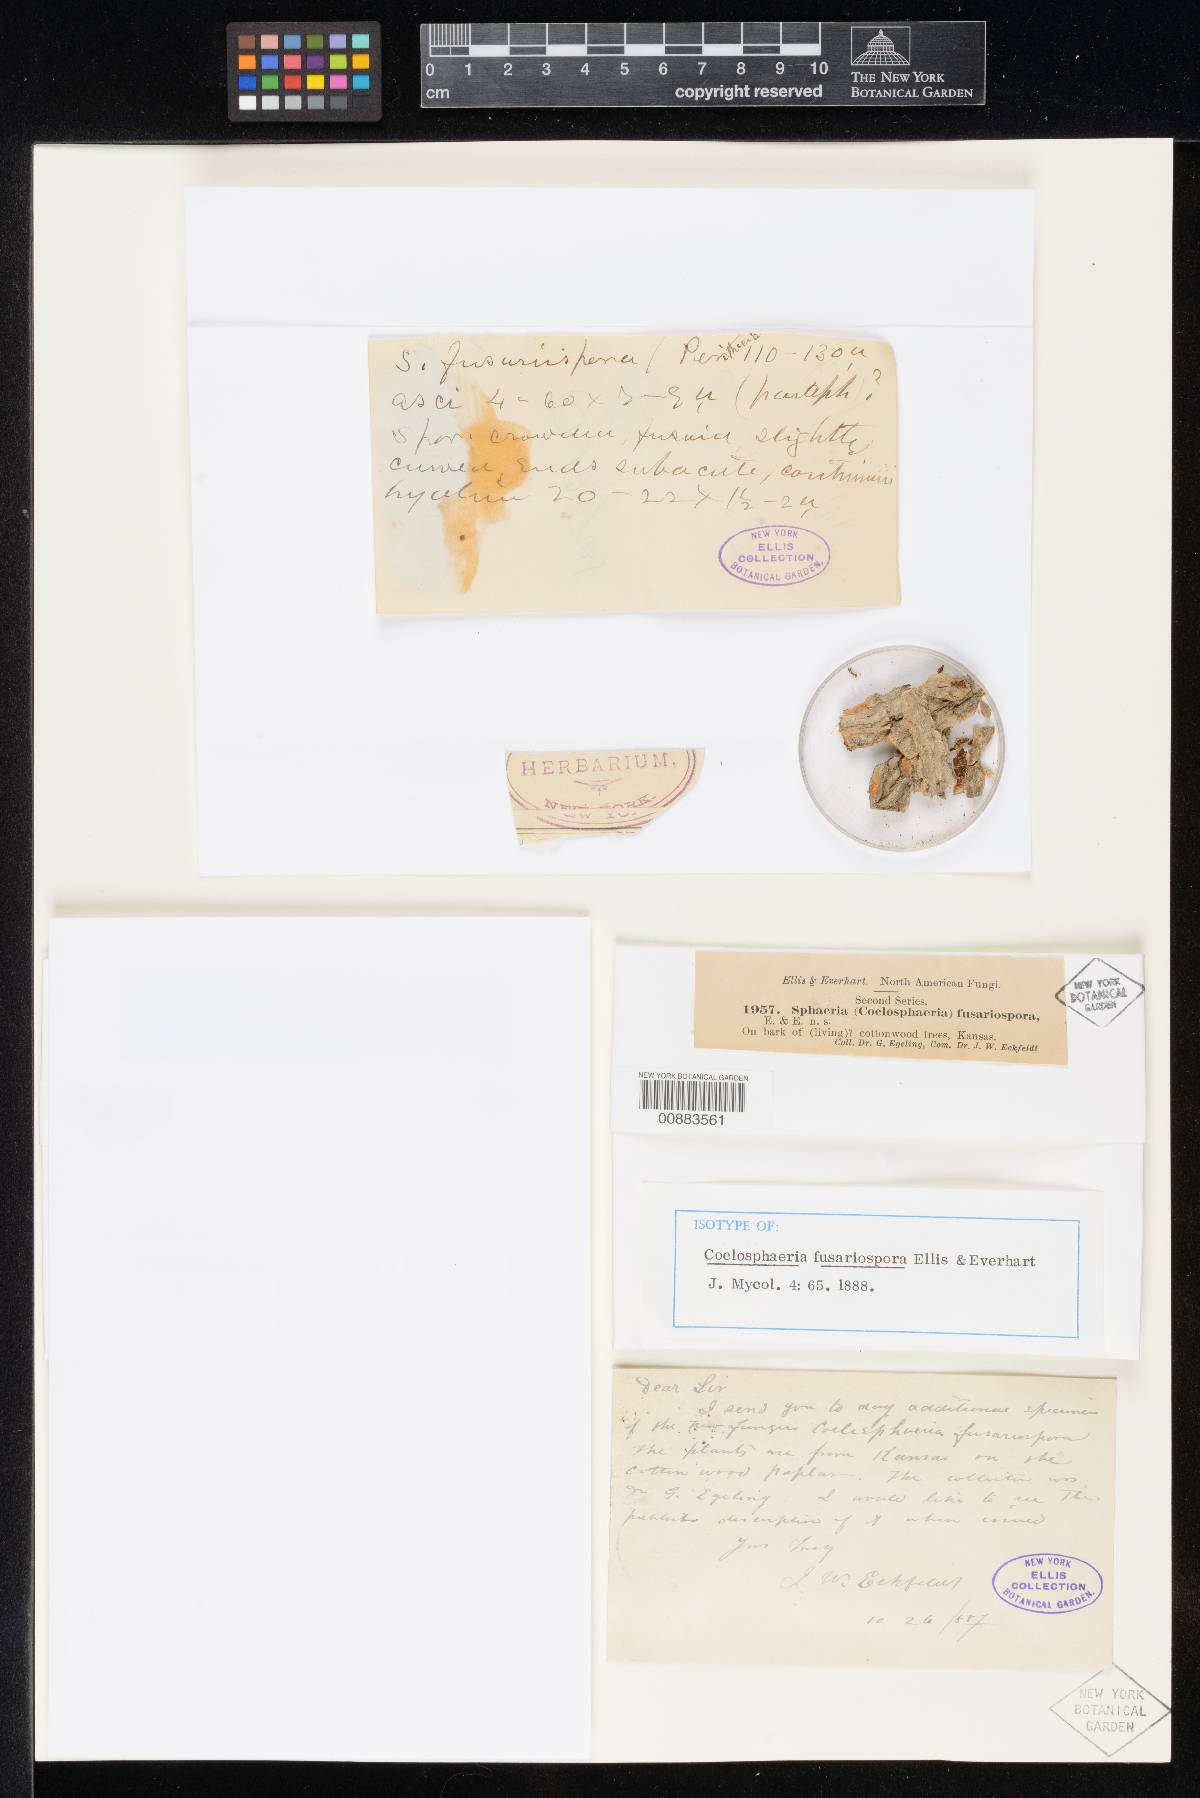 0 1 2 3 4 5 6 7 8 9 10
cm
copyright reserved
THE NEW YORK
BOTANICAL GARDEN
S. fusariispora ( Perithecia 110-130µ
asci 4-60 x 7-9µ (paraph)?
Spor. crowded, fusoid, slightly
curved, ends subacute, continuous
hyaline 20-22 x 1½-2µ
NEW YORK
ELLIS
COLLECTION
BOTANICAL GARDEN.
HERBARIUM,
NEW YORK.
Ellis & Everhart. North American Fungi.
Second Series.
1957. Sphaeria (Coelosphaeria) fusariospora,
E. & E. n. s.
On bark of (living)? cottonwood trees, Kansas.
Coll. Dr. G, Egeling, Com. Dr. J. W. Eckfeldt
NEW YORK
BOTANICAL
GARDEN
NEW YORK BOTANICAL GARDEN
00883561
ISOTYPE OF:
Coelosphaeria fusariospora Ellis & Everhart
J. Mycol. 4: 65. 1888.
Dear Sir
I send you to day additional specimens
of the new fungus Coelosphaeria fusariospora
The plants are from Kansas on the
cotton wood poplar. The collector was
Dr G. Egeling. I would like to see the
description of it when issued
Yours Truly
J. W. Eckfeldt
10 26/887
NEW YORK
ELLIS
COLLECTION
BOTANICAL GARDEN.
NEW YORK
BOTANICAL
GARDEN